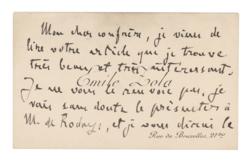 Mon cher confrère, je viens de
lire votre article que je trouve
très beau et très intéressant.
Emile Zola
Je ne vous le renvoie pas, je
vais sans doute le présenter à
M. de Rodays, et je vous écrirai le
Rue de Bruxelles, 21bis